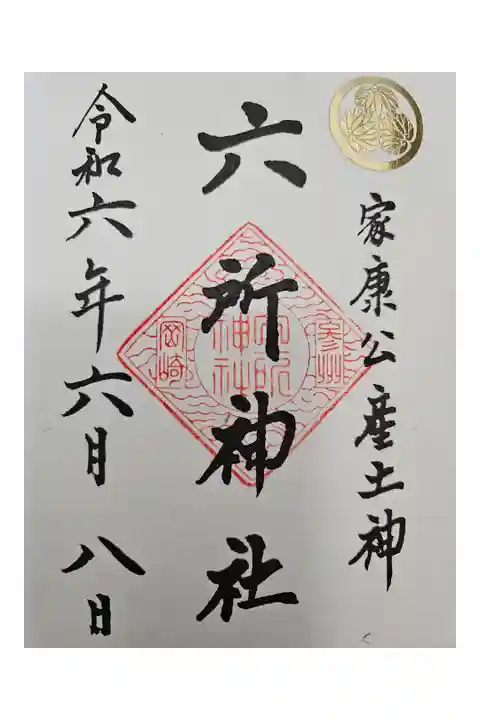 家康公産土神
六所神社
参州
六所神社
岡崎
令和六年六月八日